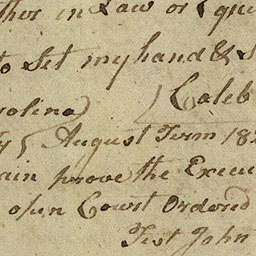 ther in Law or Equi
to Set my hand & S
rolina) ) Caleb
ty { August Term 18
ain prove the Execu
open Court Ordered
Test John